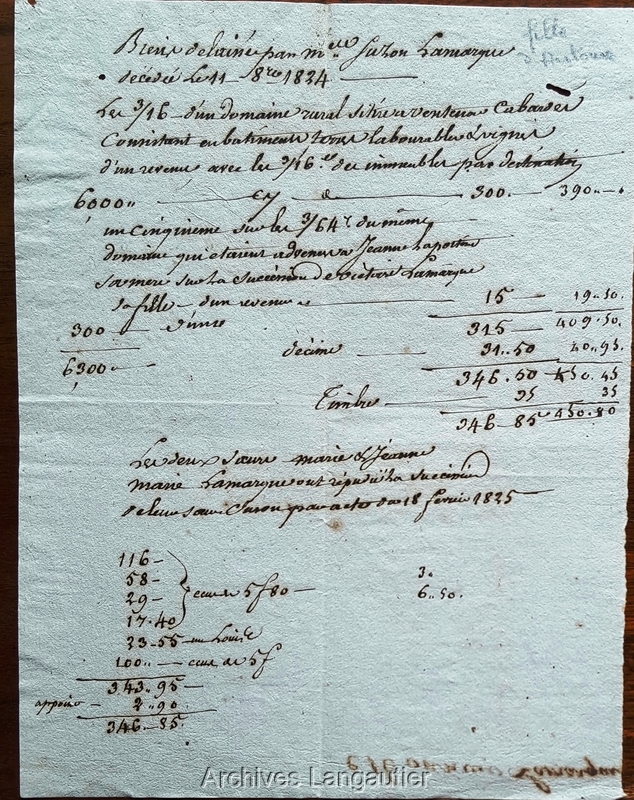 Biens delaissés par m.elle Suzon Lamarque
fille
d'Antoine
décédée le 11 8bre 1824
Les 3/16 d'un domaine rural situé a ventenac Cabardés
Consistant en batiments terres labourables & vignes
d'un revenu avec les 3/16es des immeubles par destination
6000,, cy 300. 390
un cinquieme sur les 3/64es du même
domaine qui etaient advenus a Jeanne Laportre
sa mere sur la succession de victoire Lamarque
sa fille d'un revenu de 15 19..50.
300 315 409.50.
6300 décime 31..50 40..95
346.50 450.45
Timbre 35 35
346..85 450.80
Les deux sœurs marie & Jeanne
marie Lamarque ont répudié la succession
de leur sœur Suzon par acte du 18 fevrier 1825
116
58 3.
29 ecus de 5f80 6..50.
17.40
23-55 un Louis
100.. ecus de 5f
343..95
appoint 2..90
346..85
Lamarque
Archives Langautier